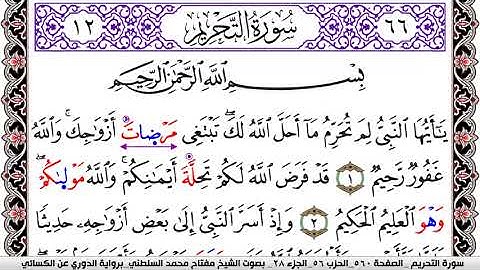 ٦٦ سُورَةُ التَّحْرِيمِ ١٢
بِسْمِ اللَّهِ الرَّحْمَٰنِ الرَّحِيمِ
يَٰٓأَيُّهَا النَّبِىُّ لِمَ تُحَرِّمُ مَآ أَحَلَّ اللَّهُ لَكَۖ تَبْتَغِى مَرْضَاتَ أَزْوَٰجِكَۚ وَاللَّهُ
غَفُورٌ رَّحِيمٌ ١ قَدْ فَرَضَ اللَّهُ لَكُمْ تَحِلَّةَ أَيْمَٰنِكُمْۚ وَاللَّهُ مَوْلَىٰكُمْۖ
وَهْوَ الْعَلِيمُ الْحَكِيمُ ٢ وَإِذْ أَسَرَّ النَّبِىُّ إِلَىٰ بَعْضِ أَزْوَٰجِهِۦ حَدِيثًا
سورة التحريم_الصفحة ٥٦٠_الحزب ٥٦_الجزء ٢٨_ بصوت الشيخ مفتاح محمد السلطني_برواية الدوري عن الكسائي